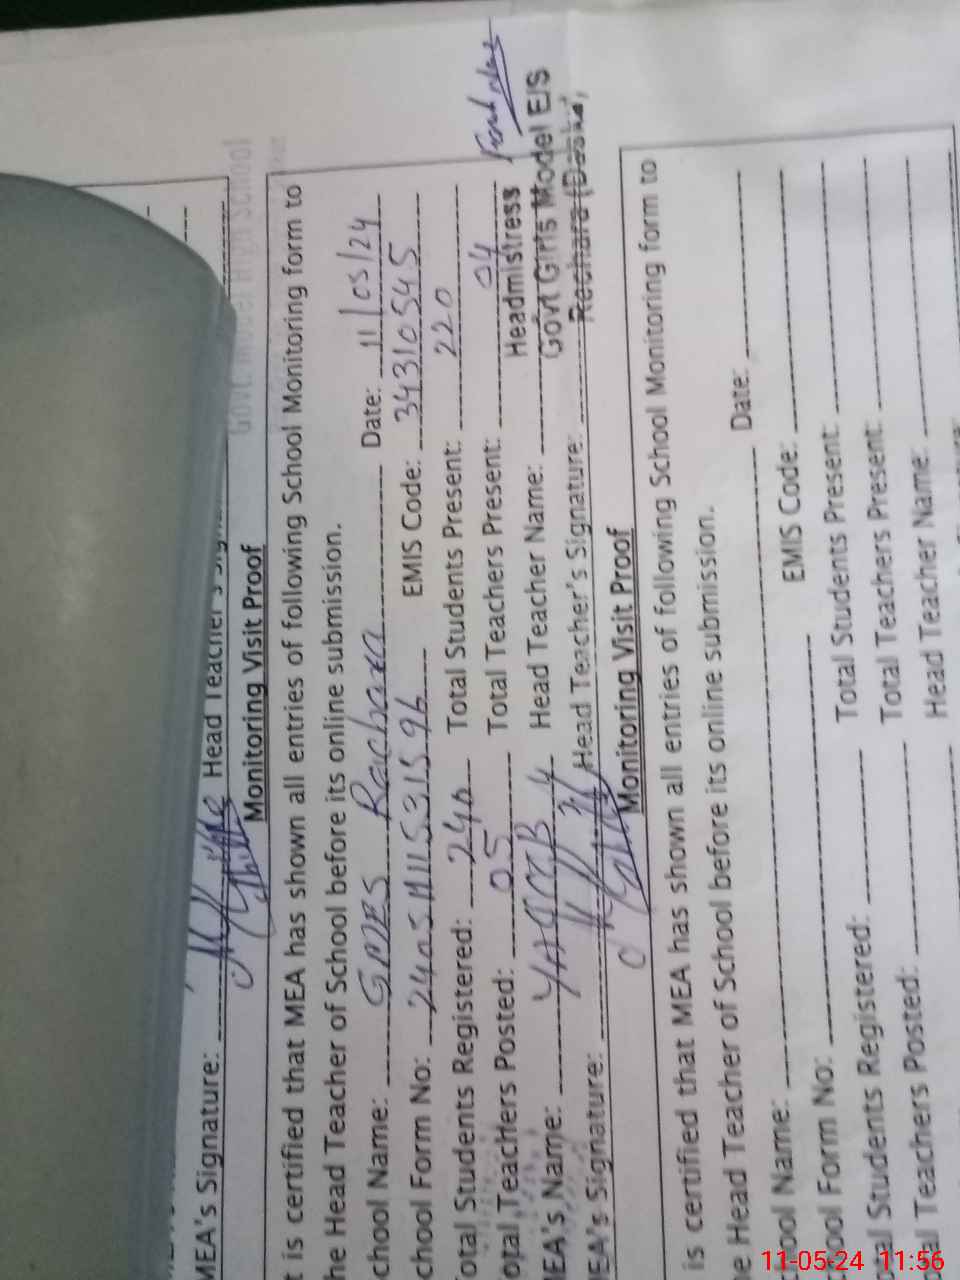 MEA's Signature: Head Teacher's
Govt. Model High School
Monitoring Visit Proof
t is certified that MEA has shown all entries of following School Monitoring form to
he Head Teacher of School before its online submission.
chool Name: GMES Rachara Date: 11/05/24
chool Form No: 2405M11531596 EMIS Code: 34310545
otal Students Registered: 240 Total Students Present: 220
otal Teachers Posted: 05 Total Teachers Present: 04
MEA's Name: Head Teacher Name: Headmistress
Govt Girls Model E/S
MEA's Signature: Head Teacher's Signature: Rachara (Daska)
Monitoring Visit Proof
is certified that MEA has shown all entries of following School Monitoring form to
e Head Teacher of School before its online submission.
hool Name: Date:
ool Form No: EMIS Code:
tal Students Registered: Total Students Present:
al Teachers Posted: Total Teachers Present:
Head Teacher Name:
11-05-24 11:56